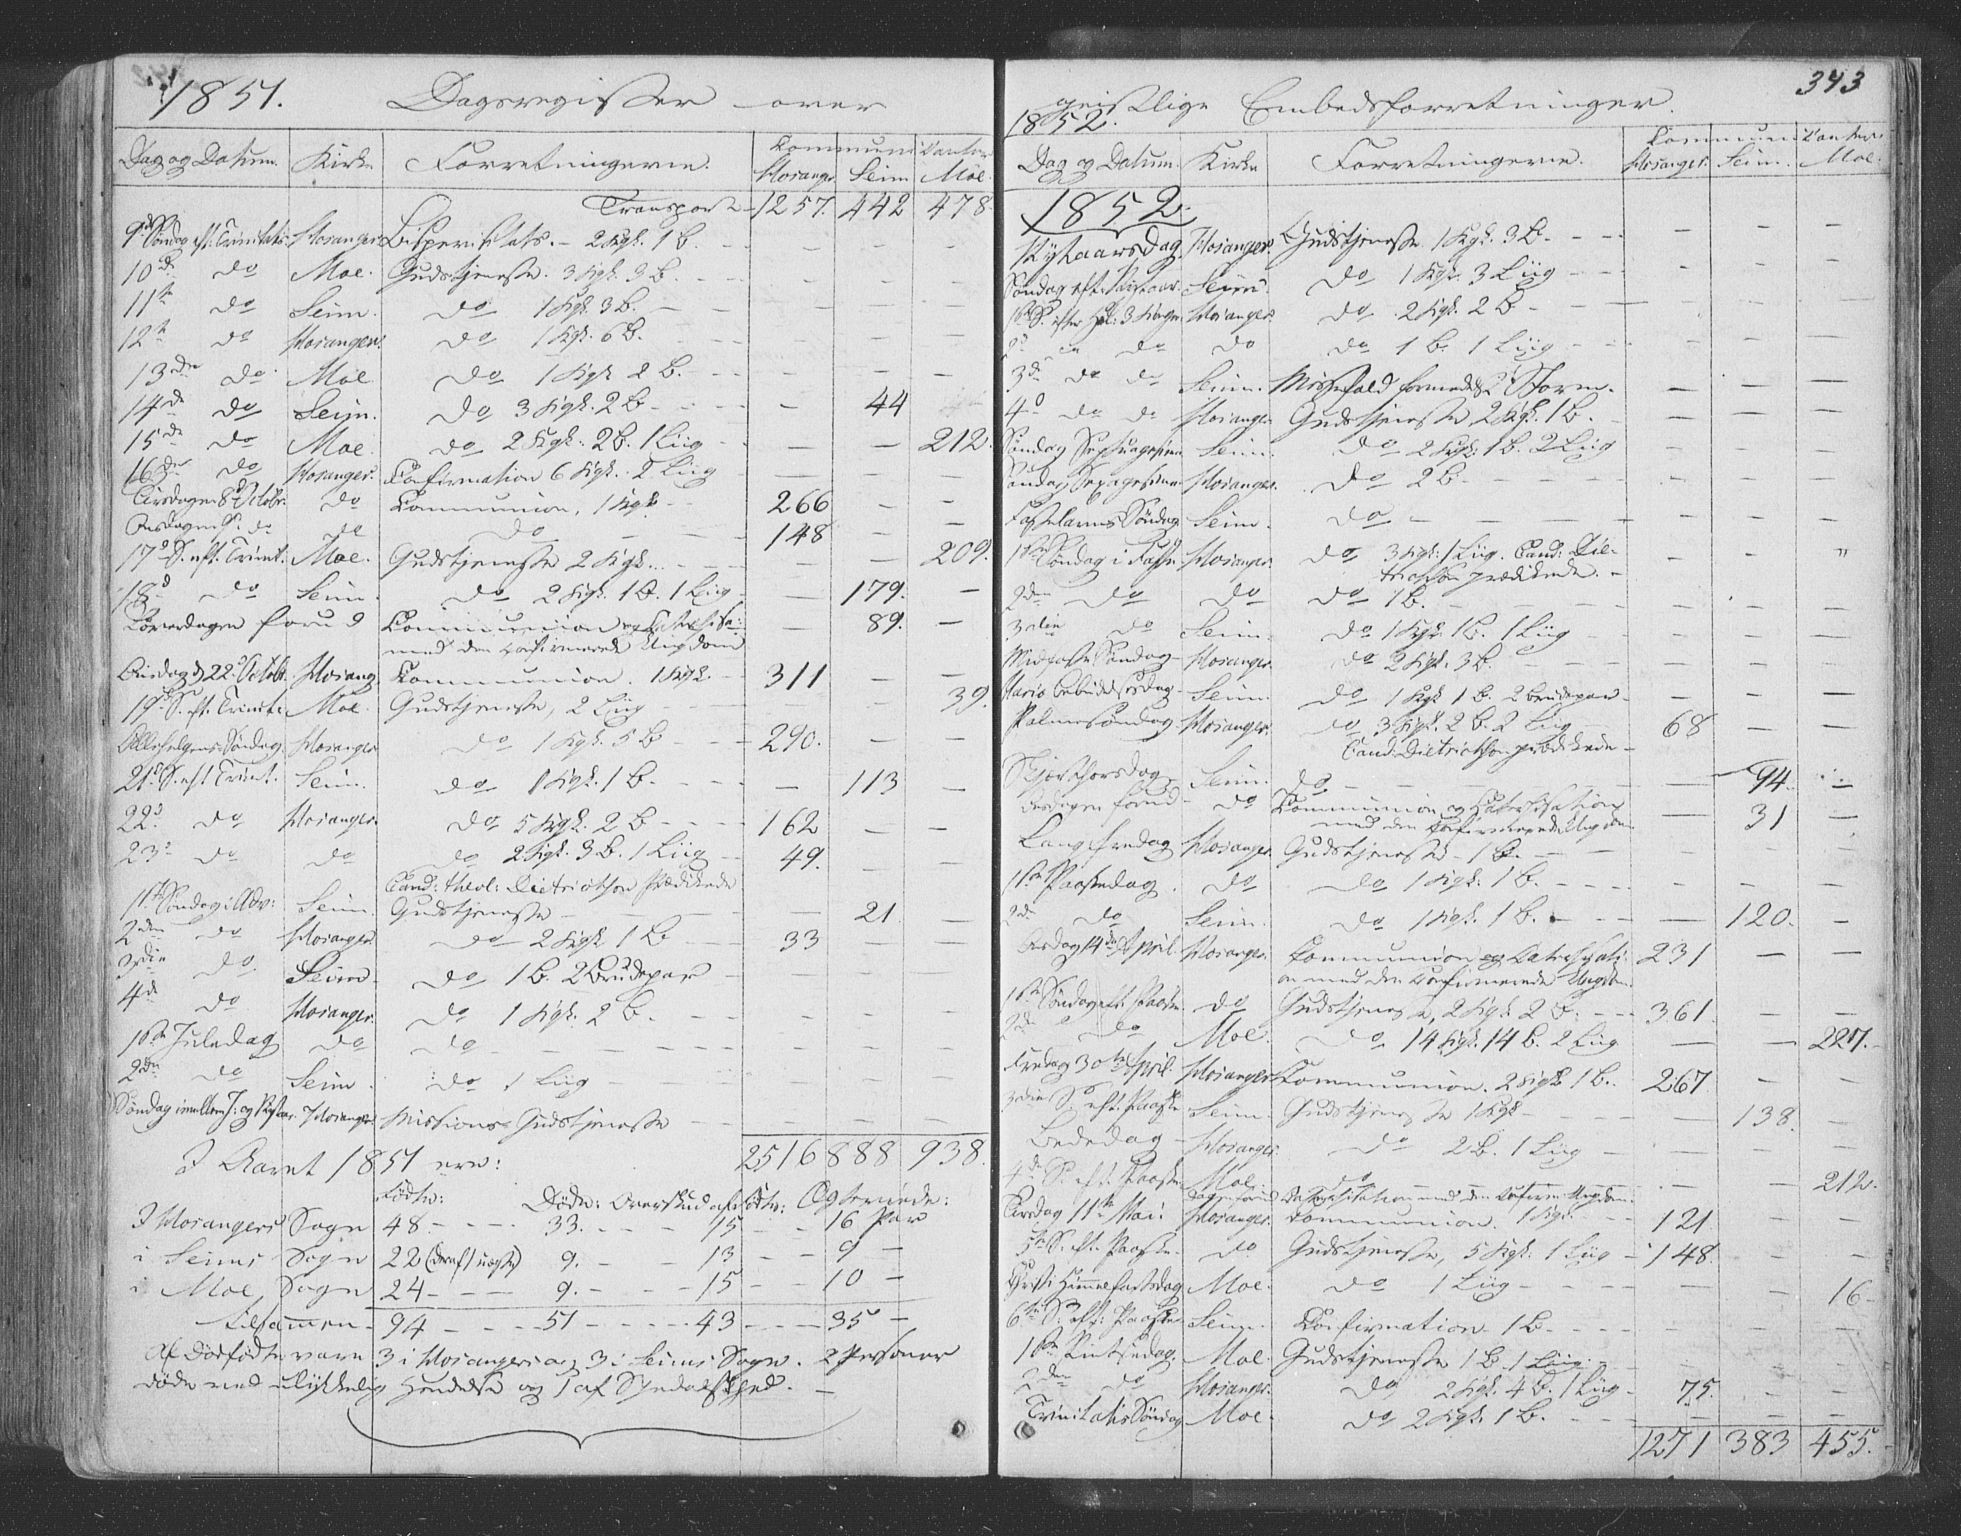 1851. Dagsregister over
Dag og Datum. Kirke Forretningerne. Communicanter
Hosanger. Seim Moe.
Transport 1257. 442 478.
9de Søndag eft: Trinitatis. Hosanger. Bispevisitats. - 2 Kgk. 1 B. - - -
10de do Moe. Gudstjeneste. 3 Kgk. 3 B. - - -
11te do Seim. do 1 Kgk. 3 B. - - -
12te do Hosanger. do 1 Kgk. 6 B. - - -
13de do Moe do 1 Kgk. 2 B. - - -
14de do Seim. do 3 Kgk. 2 B - 44
15de do Moe. do 2 Kgk. 2 B. 1 Liig - - 212.
16de do Hosanger. Confirmation 6 Kgk. 2 Liig - - -
Tirsdagen 8de Octobr. do Communion, 1 Kgk 266 - -
Onsdagen 9de do do do 148 - -
17de S. eft. Trinit: Moe. Gudstjeneste 2 Kgk. - - 209.
18de do Seim. do 2 Kgk. 1 B. 1 Liig - 179. -
Løverdagen foru d Communion og Catechisa: - 89. -
med den confirmerede Ungdom
Onsdag d 22de Octobr. Hosang. Communion. 1 Kgk. 311 - -
19de S. eft. Trinit: Moe. Gudstjeneste, 2 Liig - - 39.
Allehelgens-Søndag. Hosanger do 1 Kgk. 5 B 290. - -
21de S. eft Trinit. Seim. do 1 Kgk. 1 B. - 113 -
22de do Hosanger. do 5 Kgk. 2 B 162 - -
23de do do do 2 Kgk. 3 B. 1 Liig 49. - -
Cand: theol: Dietrichson Prædikede
1ste Søndag i Adv: Seim. Gudstjeneste - 21. -
2den do Hosanger. do 2 Kgk 1 B 33 - -
3die do. Seim do 1 B. 2 Brudepar - - -
4de do Hosanger. do 1 Kgk. 2 B. - - -
1ste Juledag do do - - -
2den do Seim. do 1 Liig - - -
Søndag imellem J: og Nytaar. Hosanger. Missions-Gudstjeneste - - -
2516 888 938.
I Aaret 1851 ere:
Fødte: Døde: Overskud af Fødte: Egteviede:
I Hosangers Sogn 48 - 33. - 15 - 16 Par
i Seims Sogn 22 (deraf 1 uægte) 9. - 13 - 9 -
i Moe, Sogn 24 - 9. - 15 - 10 -
tilsamen - 94 - 51 - 43 - 35 -
Af Dødfødte vare 3 i Hosanger og 3 i Seims Sogn. 2 Personer
døde ved ulykkelig Hendelse og 1 af Spedalskhed. -
343
geistlige Embedsforretninger.
1852.
Dag og Datum. Kirke Forretningerne. Communicanter
Hosanger. Seim. Moe.
1852.
Nytaarsdag Hosanger. Gudstjeneste 1 Kgk. 3 B. - - -
Søndag eft. Nytaar. Seim. do 1 Kgk. 3 Liig - - -
1ste S. efter Hel: 3 Konger Hosanger. do 2 Kgk. 2 B - - -
2de do do do 1 B. 1 Liig - - -
3de do do Seim. Messefald formedelst Storm. - - -
4de do do Hosanger. Gudstjeneste, 2 Kgk. 1 B. - - -
Søndag Septuagesima Seim. do 2 Kgk. 1 B. 2 Liig - - -
Søndag Sexagesima Hosanger. do 2 B. - - -
Fastelavns Søndag Seim. do - - -
1ste Søndag i Faste Hosanger. do 3 Kgk: 1 Liig. Cand: Die-
trichson prædikede. -
2den do do do 1 B. - - -
3die do Seim. do 1 Kgk. 1 B. 1 Liig - - -
Midfaste Søndag Hosanger. do 2 Kgk. 3 B. - - -
Mariæ Bebudelsesdag Seim. do 1 Kgk 1 B. 2 Brudepar - - -
Palmesøndag Hosanger. do 3 Kgk. 2 B. 2 Liig 68 - -
Cand. Dietrichson prædikede -
Skjærthorsdag Seim. do - 94. -
Dagen forud - do Communion og Catechisation - 31 -
med den Confirmerede Ungdom
Langfredag Hosanger. Gudstjeneste - 1 B. - - -
1ste Paaskedag. do do 1 Kgk. 1 B. - - -
2den do Seim. do 1 Kgk. 1 B. - 120. -
Onsdag 14de April. Hosanger. Communion og Catechisati- 231 - -
on med den Confirmerede Ungdom.
1ste Søndag eft. Paaske do Gudstjeneste, 2 Kgk 2 B. 361 - -
2de do Moe. do 14 Kgk. 14 B. 2 Liig - - 227.
Fredag 30te April. Hosanger Communion. 2 Kgk 1 B. 267 - -
3die S. eft. Paaske Seim. Gudstjeneste 1 Kgk - 138. -
Bededag - Hosanger. do 2 B. 1 Liig - - -
4de S. eft. Paaske Moe. do - - 212.
Dagen forud Catechisation med den Confirm. Ungdom.
Tirsdag 11te Mai. Hosanger. Communion. 1 Kgk. 121 - -
5te S. eft. Paaske. do Gudstjeneste, 5 Kgk. 1 Liig 148. - -
Christi Himmelfartsdag Moe. do 1 Liig - - 16 -
6te S. eft. Paaske Seim. Confirmation 1 B. - - -
1ste Pintsedag. Moe. Gudstjeneste 1 B. 1 Liig. - - -
2den do Hosanger. do 2 Kgk. 4 B. 1 Liig - 75. - -
Trinitatis Søndag Moe. do 2 Kgk. 1 B. - - -
1271 383 455.